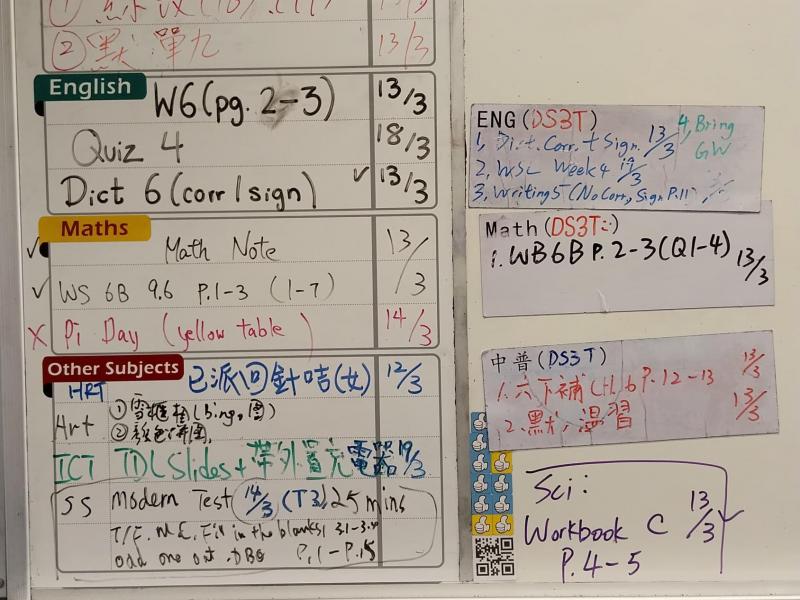 ② 默 單九 13/3
English
W6 (pg. 2-3) 13/3
Quiz 4 18/3
Dict 6 (corr / sign) ✓ 13/3
Maths
✓ Math Note 13/3
✓ WS 6B 9.6 P.1-3 (1-7)
X Pi Day (yellow table) 14/3
Other Subjects
HRT 已派回針咭(女) 12/3
Art ①
②
ICT TDL Slides + 帶外置充電器 19/3
SS Modern Test 14/3 (T3) 25 mins
T/F. M.C. Fill in the blanks, 3.1-3.4
odd one out. DBQ P.1-P.15
ENG (DS3T)
1, Dict. Corr. + Sign. 13/3
2, WSL Week 4 19/3
3, Writing 5 (No Corr, Sign P.11)
4, Bring GW
Math (DS3T)
1. WB6B P. 2-3 (Q1-4) 13/3
中普 (DS3T)
1. 六下補 P.12-13 13/3
2. 默, 溫習 13/3
Sci:
Workbook C 13/3 ✓
P.4-5